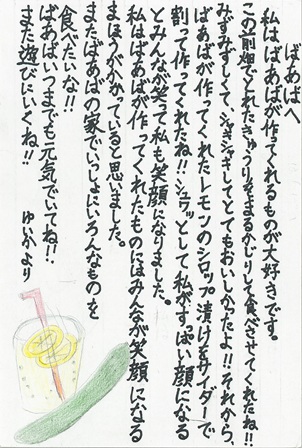 ばあばへ
私はばあばが作ってくれるものが大好きです。
この前畑でとれたきゅうりそのまるかじりして食べさせてくれたね!!
みずみずしくて、シャキシャキしてとてもおいしかったよ!!それから、
ばあばが作ってくれたレモンのシロップ漬けをサイダーで
割って作ってくれたね!!シュワッとして私がすっぱい顔になる
とみんなが笑って私も笑顔になりました。
私はばあばが作ってくれたものにはみんなが笑顔になる
まほうがかかっていると思いました。
またばあばの家でいっしょにいろんなものを
食べたいな!!
ばあばいつまでも元気でいてね!!
また遊びにいくね!! ゆいかより